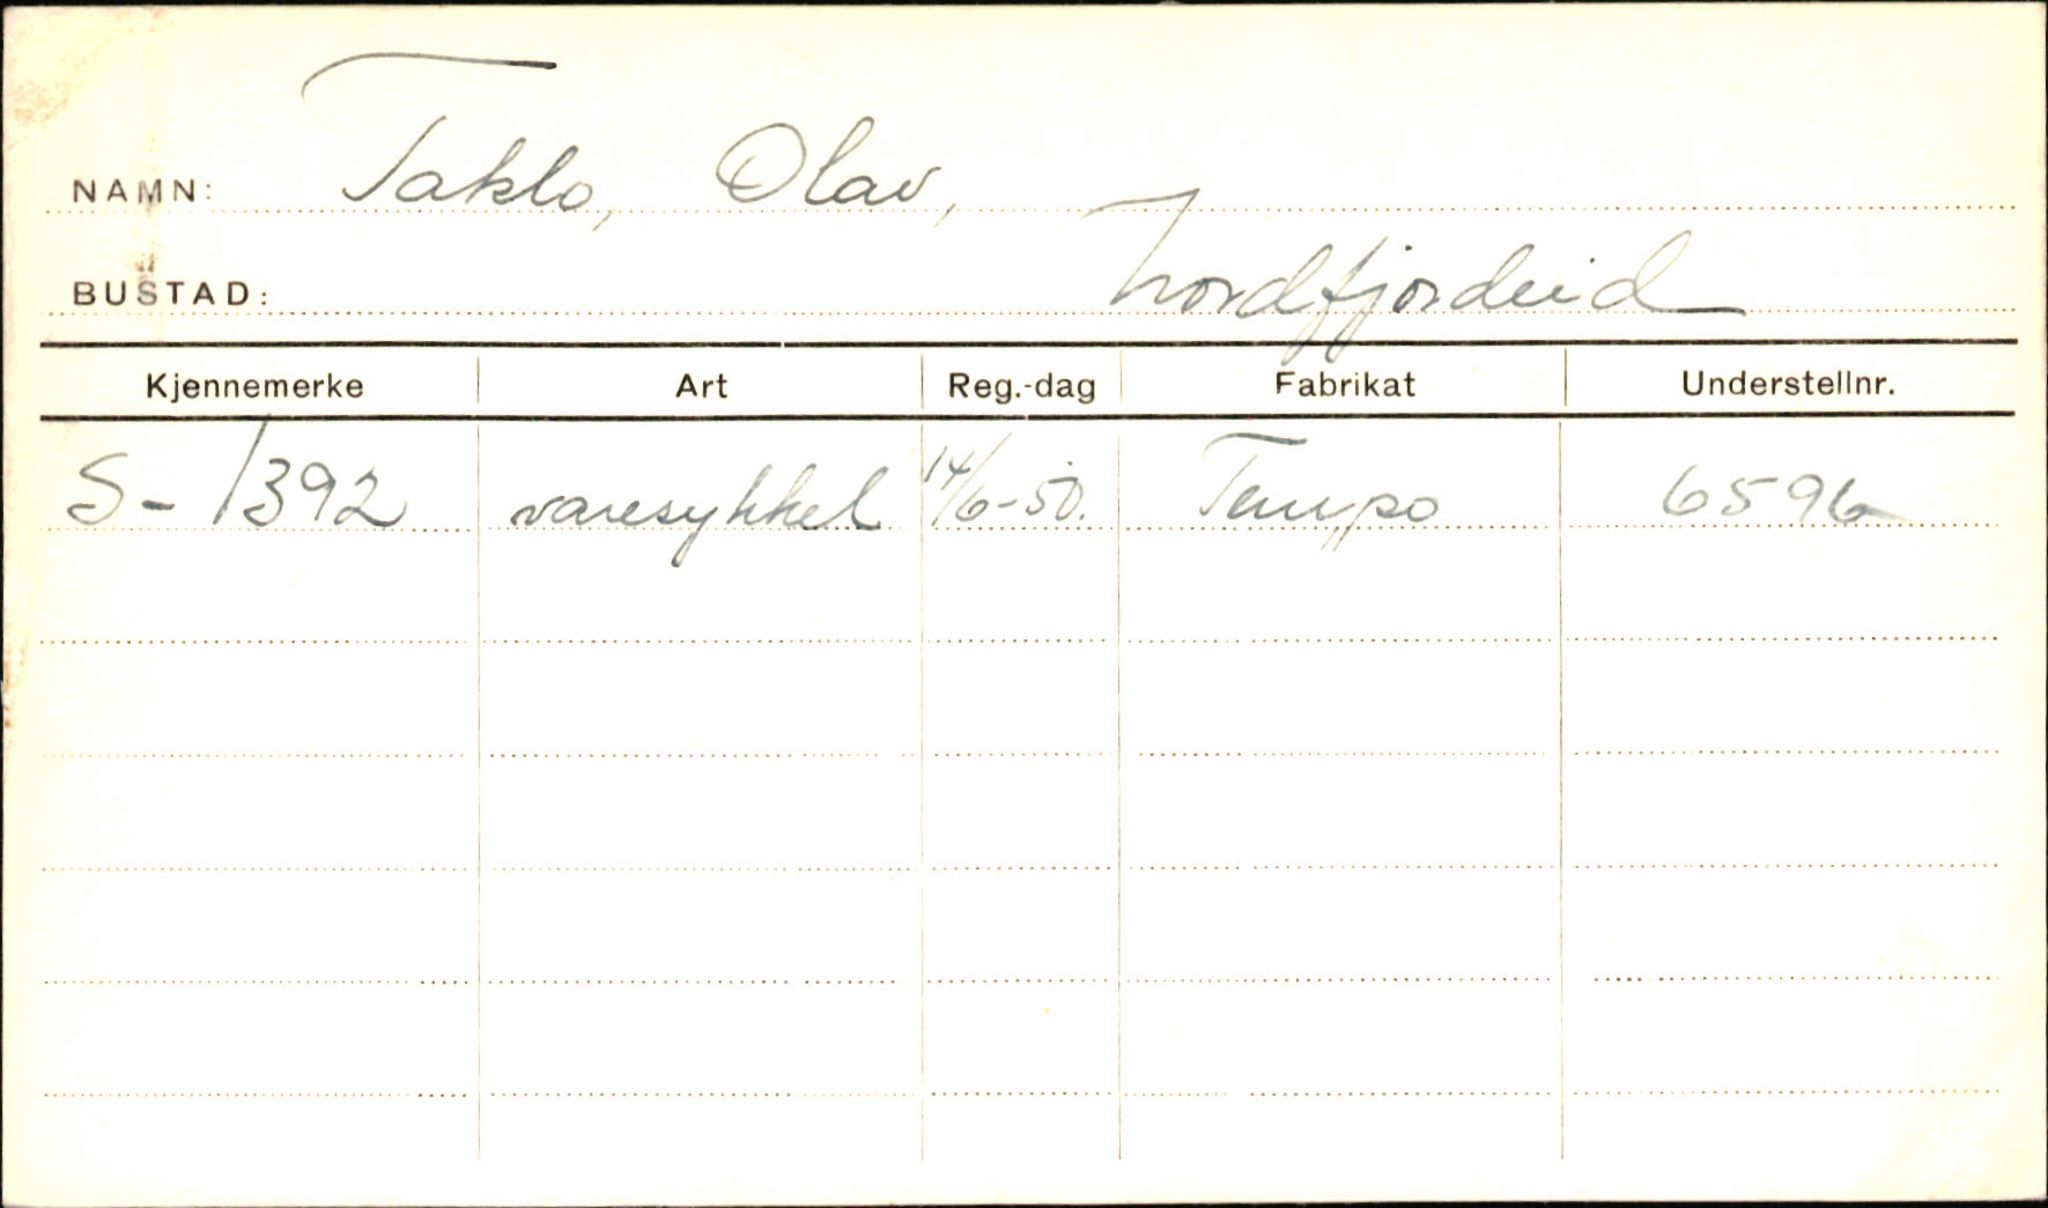 NAMN: Taklo, Olav,
BUSTAD: Nordfjordeid
Kjennemerke Art Reg.-dag Fabrikat Understellnr.
S-1392 varesykkel 14/6-50. Tempo 6596